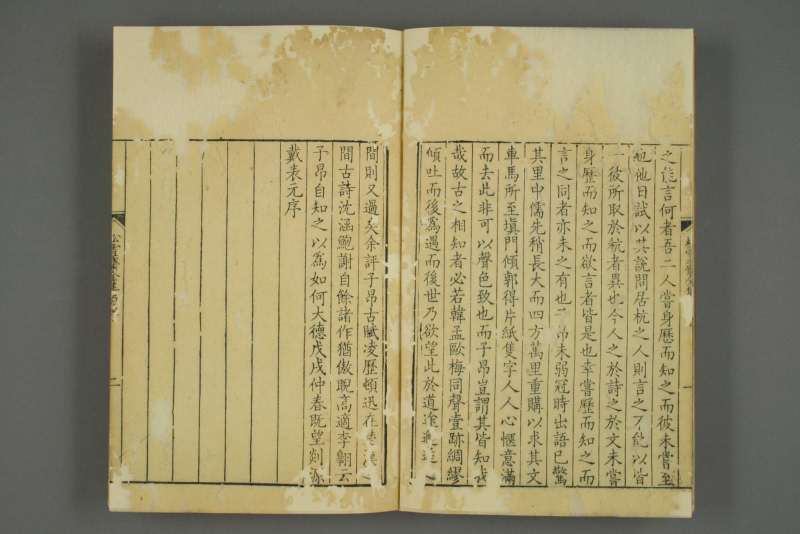 之能言何者吾二人嘗身歷而知之而彼未嘗至
也他日試以其說問居杭之人則言之不能以皆
一彼所取於杭者異也今人之於詩之於文未嘗
身歷而知之而欲言者皆是也幸嘗歷而知之而
言之同者亦未之有也子昂未弱冠時出語已驚
其里中儒先稍長大而四方萬里重購以求其文
車馬所至填門傾郭得片紙隻字人人心愜意滿
而去此非可以聲色致也而子昂豈謂其皆知
哉故古之相知者必若韓孟歐梅同聲壹跡綢繆
傾吐而後為遇而後世乃欲望此於道途
間則又過矣余評子昂古賦凌歷頓迅在楚漢
間古詩沈涵鮑謝自餘諸作猶傲睨高適李翱云
子昂自知之以為如何大德戊戌仲春既望剡源
戴表元序